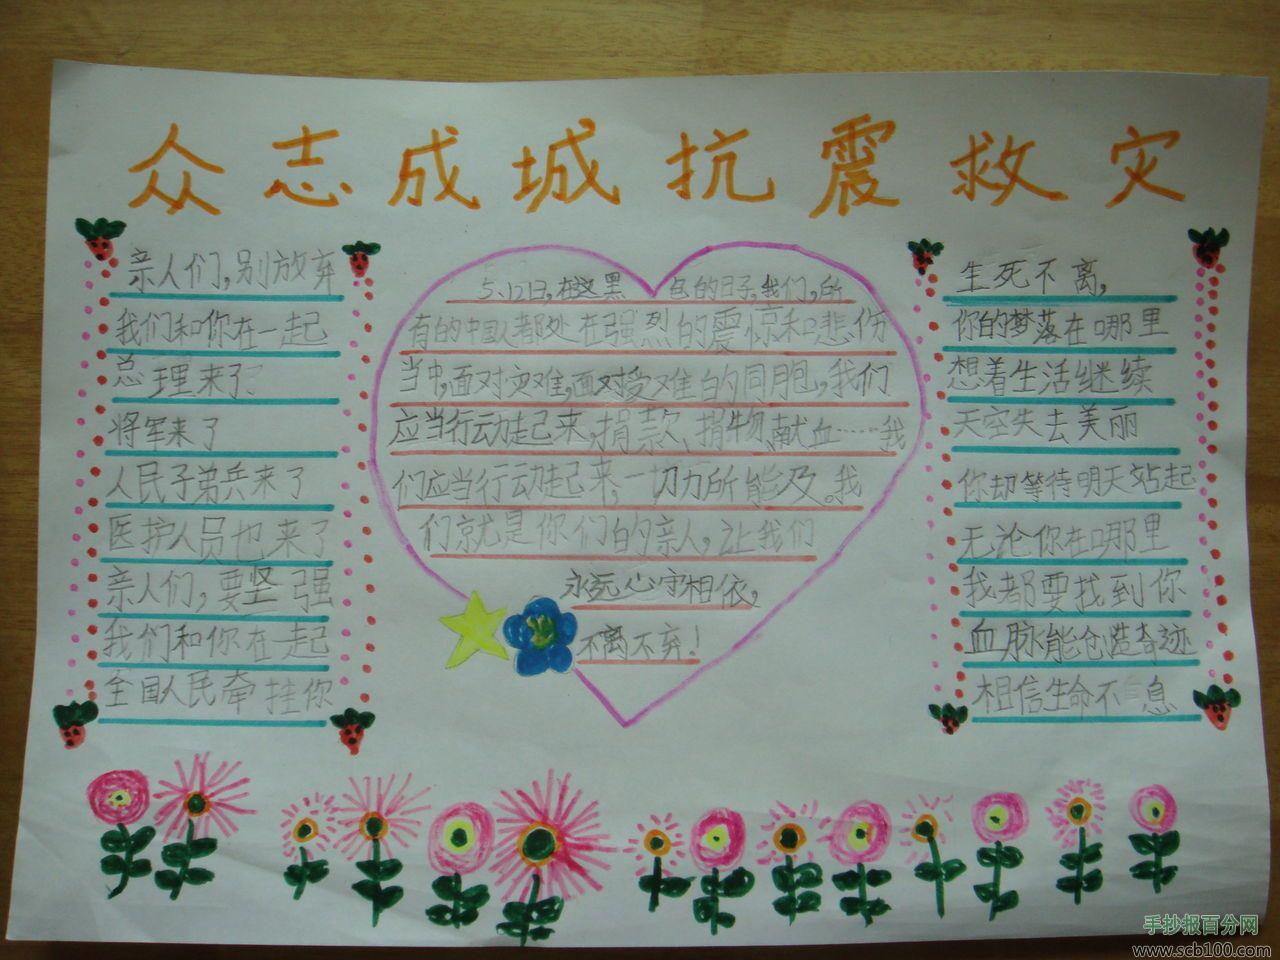 众志成城抗震救灾
亲人们,别放弃
我们和你在一起
总理来了
将军来了
人民子弟兵来了
医护人员也来了
亲人们,要坚强
我们和你在一起
全国人民牵挂你
5、12日,在这黑色的日子,我们,所
有的中国人都处在强烈的震惊和悲伤
当中,面对灾难,面对受难的同胞,我们
应当行动起来,捐款、捐物、献血……我
们应当行动起来,一切力所能及。我
们就是你们的亲人,让我们
永远心守相依,
不离不弃!
生死不离,
你的梦落在哪里
想着生活继续
天空失去美丽
你却等待明天站起
无论你在哪里
我都要找到你
血脉能创造奇迹
相信生命不息
手抄报百分网
www.scb100.com